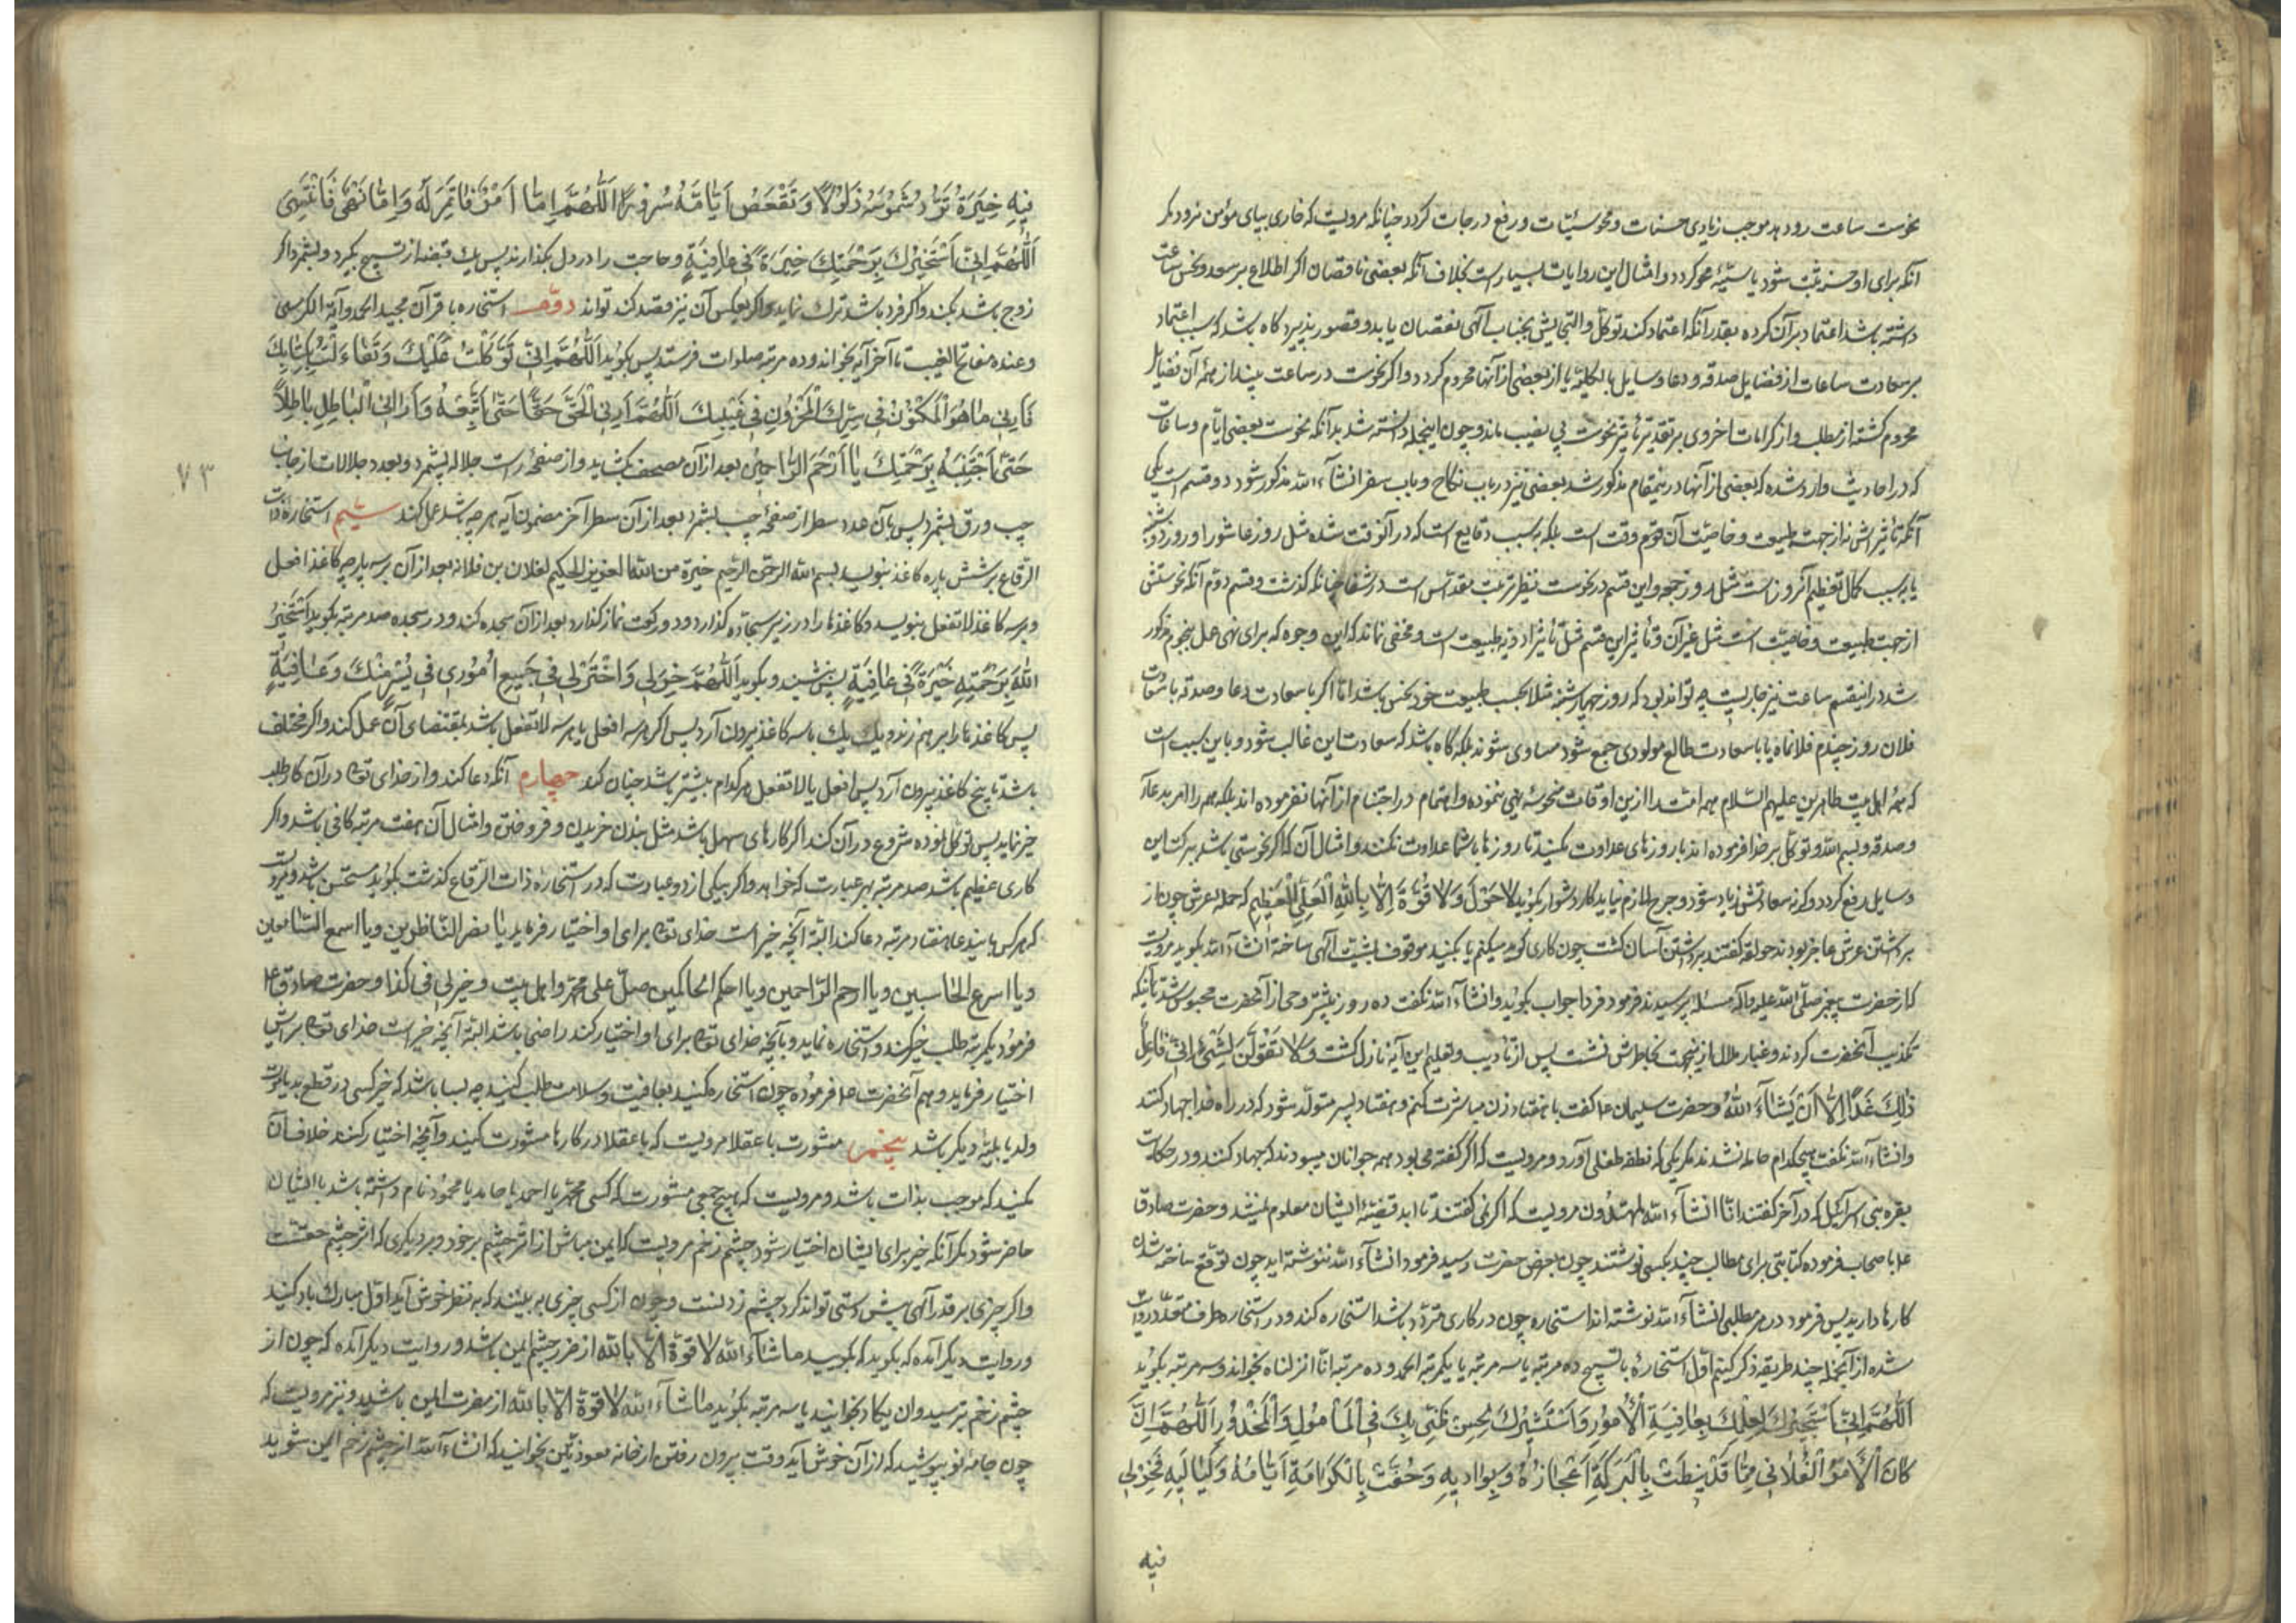 نحوست ساعت رو دهد موجب زیادی حسنات و محو سیّئات و رفع درجات کردد چنانکه مرویست که خاری بپای مؤمن نرود مکر
آنکه برای او حسنه ثبت شود یا سیّئه محو کردد و امثال این روایات بسیار است بخلاف آنکه بعضی ناقصان اکر اطلاع بر سعد و نحس ساعت
داشته باشد اعتماد بر آن کرده بقدر آنکه اعتماد کند توکّل و التجایش بجناب آلهی نقصان یابد و قصور پذیرد و کاه باشد که بسبب اعتماد
بر سعادت ساعات از فضایل صدقه و دعا و سایل بالکلیّه یا از بعضی از آنها محروم کردد و اکر نحوست در ساعت بیند از همهٔ آن فضایل
محروم کشته از مطلب و از کرامات اخروی بر تقدیر تأثیر نحوست بی نصیب ماند و چون اینجمله دانسته شد بدانکه نحوست بعضی ایّام و ساعات
که در احادیث وارد شده که بعضی از آنها در ینمقام مذکور شد بعضی نیز در باب نکاح و باب سفر انشآء الله مذکور شود دو قسم است یکی
آنکه تأثیراتش نه از جهت طبیعت و خاصیّت آن یوم وقت است بلکه بسبب وقایع است که در آنوقت شده مثل روز عاشورا و روز دوشنبه
یا بسبب کمال تعظیم آنروز است مثل روز جمعه و این قسم در نحوست نظیر تربت مقدّس است در شفا چنانکه کذشت و قسم دوّم آنکه نحوستش
از جهت طبیعت و خاصیّت است مثل غیر آن و تأثیر این قسم مثل تأثیر ادویه طبیعت است و مخفی نماند که این وجوه که برای نهی عمل نجوم مذکور
شد در اینقسم ساعت نیز جاریست چه تواند بود که روز چهارشنبه مثلا بحسب طبیعت خود نحس باشد امّا اکر با سعادت دعا و صدقه یا سعادت
فلان روز چندم فلانماه یا با سعادت طالع مولودی جمع شود مساوی شوند بلکه کاه باشد که سعادت این غالب شود و باین سبب است
که همهٔ اهل بیت طاهرین علیهم السّلام همه امّت را از ین اوقات منحوسه نهی ننموده و اهتمام در اجتناب از آنها نفرموده اند بلکه همه را امر بدعا
و صدقه و بسم الله و توکّل بر خدا فرموده اند با روزهای عداوت مکنید تا روزها با شما عداوت نکنند و امثال آن که اکر نحوستی باشد ببرکت این
وسایل رفع کردد و کرنه سعادتش زیاد شود و حرج لازم نیاید کار دشوار بکوید لَا حَوْلَ وَلَا قُوَّةَ اِلَّا بِاللهِ الْعَلِیِّ الْعَظِیمِ که حمله عرش چون از
برداشتن عرش عاجز بودند حوله کفتند برداشتن آسان کشت چون کاری کوید میکنم یا بکنید موقوف بمشیّت آلهی ساخته انشآء الله بکوید مرویست
که از حضرت پیغمبر صلّی الله علیه وآله مسئله پرسیدند فرمود فردا جواب بکوید و انشآء الله نکفت ده روز بیشتر وحی از آنحضرت محبوس شد تا آنکه
تکذیب آنحضرت کردند و غبار ملال ازینجهت بخاطرش نشست پس از تأدیب و تعلیم این آیه نازل کشت وَلَا تَقُولَنَّ لِشَیْءٍ اِنِّی فَاعِلٌ
ذٰلِكَ غَدًا اِلَّا اَنْ یَشَآءَ اللهُ و حضرت سلیمان ع کفت با هفتاد زن مباشرت کنم و هفتاد پسر متولّد شود که در راه خدا جهاد کنند
و انشآء الله نکفت هیچکدام حامله نشدند مکر یکی که نطقه طفلی آورد و مرویست که اکر کفته می بود همه جوانان میبودند که جهاد کنند و در حکایت
بقره بنی اسرآئیل که در آخر کفتند انّا انشآء الله لمهتدون مرویست که اکر نمی کفتند تا ابد قضیّهٔ ایشان معلوم نمیشد و حضرت صادق
ع باصحاب فرموده کتابتی برای مطالب چند بکسی نوشتند چون بعرض حضرت رسید فرمود انشآء الله ننوشته اید چون توقع ساخته شدن
کارها دارید پس فرمود در هر مطلبی انشآء الله نوشته اند استخاره چون در کاری متردّد باشد استخاره کند و در استخاره طرف متعدّد روایت
شده از آنجمله چند طریقه ذکر کنیم اوّل استخارهٔ با تسبیح ده مرتبه یا سه مرتبه یا یکمرتبه الحمد و ده مرتبه انّا انزلناه بخواند و سه مرتبه بکوید
اَللّٰهُمَّ اِنّی اَسْتَخِیرُكَ لِعِلْمِكَ بِعَاقِبَةِ الْاُمُورِ وَاَسْتَشِیرُكَ لِحُسْنِ ظَنّی بِكَ فِی الْمَأمُولِ وَالْمَحْذُورِ اَللّٰهُمَّ اِنْ
کَانَ الْاَمْرُ الْفُلَانِی مِمَّا قَدْ نِیطَتْ بِالْبَرَکَةِ اَعْجَازُهُ وَ بِوَادِیهِ وَ حُفَّتْ بِالْکَرَامَةِ اَیَّامُهُ وَلَیَالِیهِ فَخِرْ لِی
فیه
فِیهِ خِیَرَةً تَرُدُّ شَمُوسَهُ ذَلُولًا وَتَقْعَضُ اَیَّامَهُ سُرُورًا اَللّٰهُمَّ اِمَّا اَمْرٌ فَاَئْتَمِرُ لَهُ وَاِمَّا نَهْیٌ فَاَنْتَهِی
اَللّٰهُمَّ اِنّی اَسْتَخِیرُكَ بِرَحْمَتِكَ خِیَرَةً فِی عَافِیَةٍ و حاجت را در دل بکذارند پس یك قبضه از تسبیح بکیرد و بشمرد اکر
زوج باشد بکند و اکر فرد باشد ترك نماید و اکر بعکس آن نیز قصد کند تواند دوّم استخاره با قرآن مجید الحمد و آیة الکرسی
و عنده مفاتح الغیب تا آخر آیه بخواند و ده مرتبه صلوات فرستد پس بکوید اَللّٰهُمَّ اِنّی تَوَکَّلْتُ عَلَیْكَ وَتَفَاءَلْتُ بِکِتَابِكَ
فَاَرِنِی مَا هُوَ الْمَکْنُونُ فِی سِرِّكَ الْمَخْزُونِ فِی غَیْبِكَ اَللّٰهُمَّ اَرِنِی الْحَقَّ حَقًّا حَتّٰی اَتَّبِعَهُ وَاَرِنِی الْبَاطِلَ بَاطِلًا
حَتّٰی اَجْتَنِبَهُ بِرَحْمَتِكَ یَا اَرْحَمَ الرَّاحِمِینَ بعد از آن مصحف بکشاید و از صفحهٔ راست جلاله بشمرد و بعدد جلالات از جانب
۷۳
چپ ورق بشمرد پس بآن عدد سطر از صفحهٔ چپ بشمرد بعد از آن سطر آخر مضمون آیه هر چه باشد عمل کند سیّم استخارهٔ ذات
الرقاع بر شش پاره کاغذ بنویسد بسم الله الرحمن الرحیم خیرة من الله العزیز الحکیم لفلان بن فلانه بعد از آن بر سه پارچه کاغذ افعل
و بر سه کاغذ لا تفعل بنویسد و کاغذها را در زیر سجّاده کذارد و دو رکعت نماز کذارد بعد از آن سجده کند و در سجده صد مرتبه بکوید اَسْتَخِیرُ
اللهَ بِرَحْمَتِهِ خِیَرَةً فِی عَافِیَةٍ پس بنشیند و بکوید اَللّٰهُمَّ خِرْ لِی وَاخْتَرْ لِی فِی جَمِیعِ اُمُورِی فِی یُسْرٍ مِنْكَ وَعَافِیَةٍ
پس کاغذها را بر هم زند و یك یك یا سه کاغذ بیرون آرد پس اکر هر سه افعل یا هر سه لا تفعل باشد بمقتضای آن عمل کند و اکر مختلف
باشد تا پنج کاغذ بیرون آرد پس افعل یا لا تفعل هر کدام بیشتر باشد چنان کند چهارم آنکه دعا کند و از خدای تعالی در آن کار طلب
خیر نماید پس توکّل نموده شروع در آن کند اکر کارهای سهل باشد مثل بندن خریدن و فروختن و امثال آن هفت مرتبه کافی باشد و اکر
کاری عظیم باشد صد مرتبه بهر عبارت که خواهد و اکر بیکی از دو عبارت که در استخارهٔ ذات الرّقاع کذشت بکوید مستحسن باشد و مرویست
که هر کس باینده عا هفتاد مرتبه دعا کند البتّه آنچه خیر است خدای تعالی برای او اختیار فرماید یا ابصر النّاظرین و یا اسمع السّامعین
و یا اسرع الحاسبین و یا ارحم الرّاحمین و یا احکم الحاکمین صلّ علی محمّد و اهل بیته و خیر لی فی کذا و حضرت صادق ع
فرمود یکمرتبه طلب خیر کند و استخاره نماید و بآنچه خدای تعالی برای او اختیار کند راضی باشد البتّه آنچه خیر است خدای تعالی برایش
اختیار فرماید و هم آنحضرت ع فرموده چون استخاره کنید بعافیت و سلامت طلب کنید چه بسا باشد که خیر کسی در قطع ید یا موت
ولد یا بلیّه دیکر باشد پنجم مشورت با عقلا مرویست که با عقلا در کارها مشورت کنید و آنچه اختیار کنند خلاف آن
مکنید که موجب ندامت باشد و مرویست که هیچ جمعی مشورت که کسی محمّد یا احمد یا حامد یا محمود نام داشته باشد با ایشان
حاضر شود مکر آنکه خیر برای ایشان اختیار شود چشم زخم مرویست که ایمن مباش از اثر چشم بر خود و بر دیکری که اثر چشم حقّست
و اکر چیزی بر قدر آلهی پیش دستی تواند کرد چشم زدنست و چون از کسی چیزی به بینند که به نظر خوش آید اوّل مبارك باد کنید
و روایت دیکر آمده که بکوید ما شآء الله لا قوّة الّا بالله از ضرر چشم ایمن باشد و روایت دیکر آمده که چون از
چشم زخم بترسید و ان یکاد بخوانید یا سه مرتبه بکوید ما شآء الله لا قوّة الّا بالله از مضرّت ایمن باشید و نیز مرویست که
چون جامهٔ نو بپوشید که از آن خوش آید وقت بیرون رفتن از خانه معوذتین بخوانید که انشآء الله از چشم زخم ایمن شوید